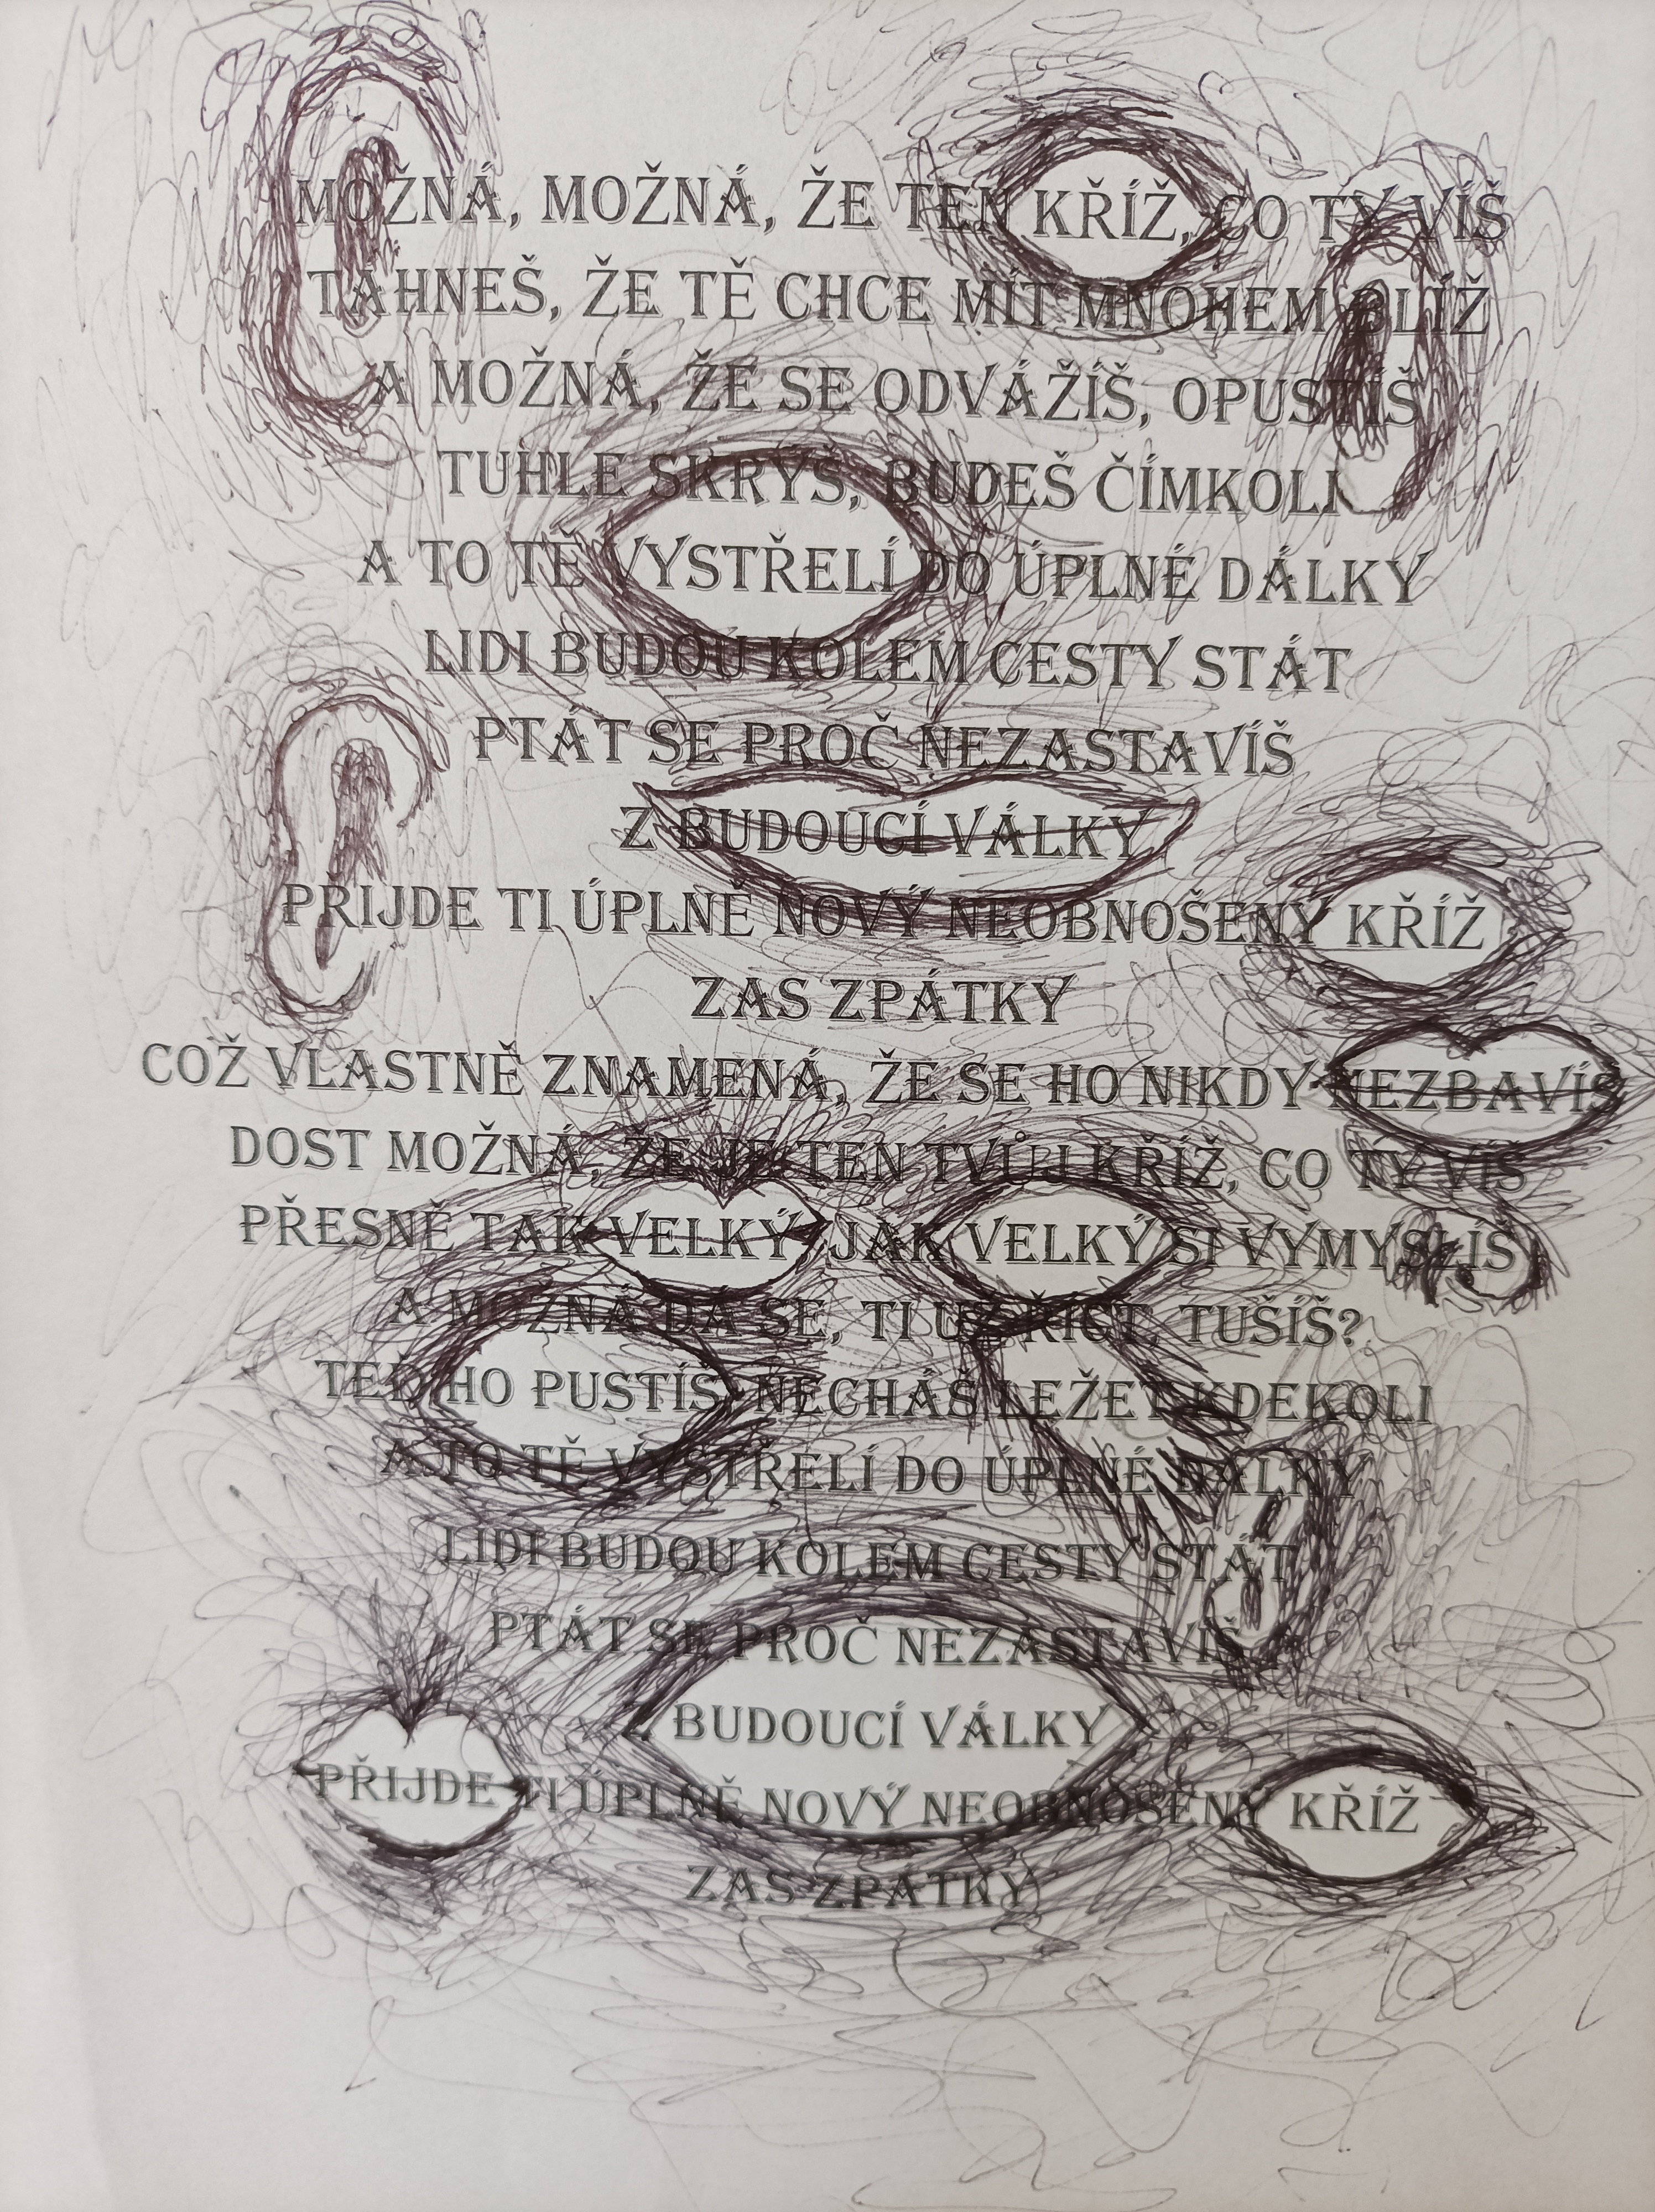 MOŽNÁ, MOŽNÁ, ŽE TEN KŘÍŽ, CO TY VÍŠ
TÁHNEŠ, ŽE TĚ CHCE MÍT MNOHEM BLÍŽ
A MOŽNÁ, ŽE SE ODVÁŽÍŠ, OPUSTÍŠ
TUHLE SKRÝŠ, BUDEŠ ČÍMKOLI
A TO TĚ VYSTŘELÍ DO ÚPLNÉ DÁLKY
LIDI BUDOU KOLEM CESTY STÁT
PTÁT SE PROČ NEZASTAVÍŠ
Z BUDOUCÍ VÁLKY
PŘIJDE TI ÚPLNĚ NOVÝ NEOBNOŠENÝ KŘÍŽ
ZAS ZPÁTKY
COŽ VLASTNĚ ZNAMENÁ, ŽE SE HO NIKDY NEZBAVÍŠ
DOST MOŽNÁ, ŽE JE TEN TVŮJ KŘÍŽ, CO TY VÍŠ
PŘESNĚ TAK VELKÝ, JAK VELKÝ SI VYMYSLÍŠ
A MOŽNÁ DÁ SE, TI UŽ ŘÍCT, TUŠÍŠ?
TEĎ HO PUSTÍŠ, NECHÁŠ LEŽET KDEKOLI
A TO TĚ VYSTŘELÍ DO ÚPLNÉ DÁLKY
LIDI BUDOU KOLEM CESTY STÁT
PTÁT SE PROČ NEZASTAVÍŠ
Z BUDOUCÍ VÁLKY
PŘIJDE TI ÚPLNĚ NOVÝ NEOBNOŠENÝ KŘÍŽ
ZAS ZPÁTKY